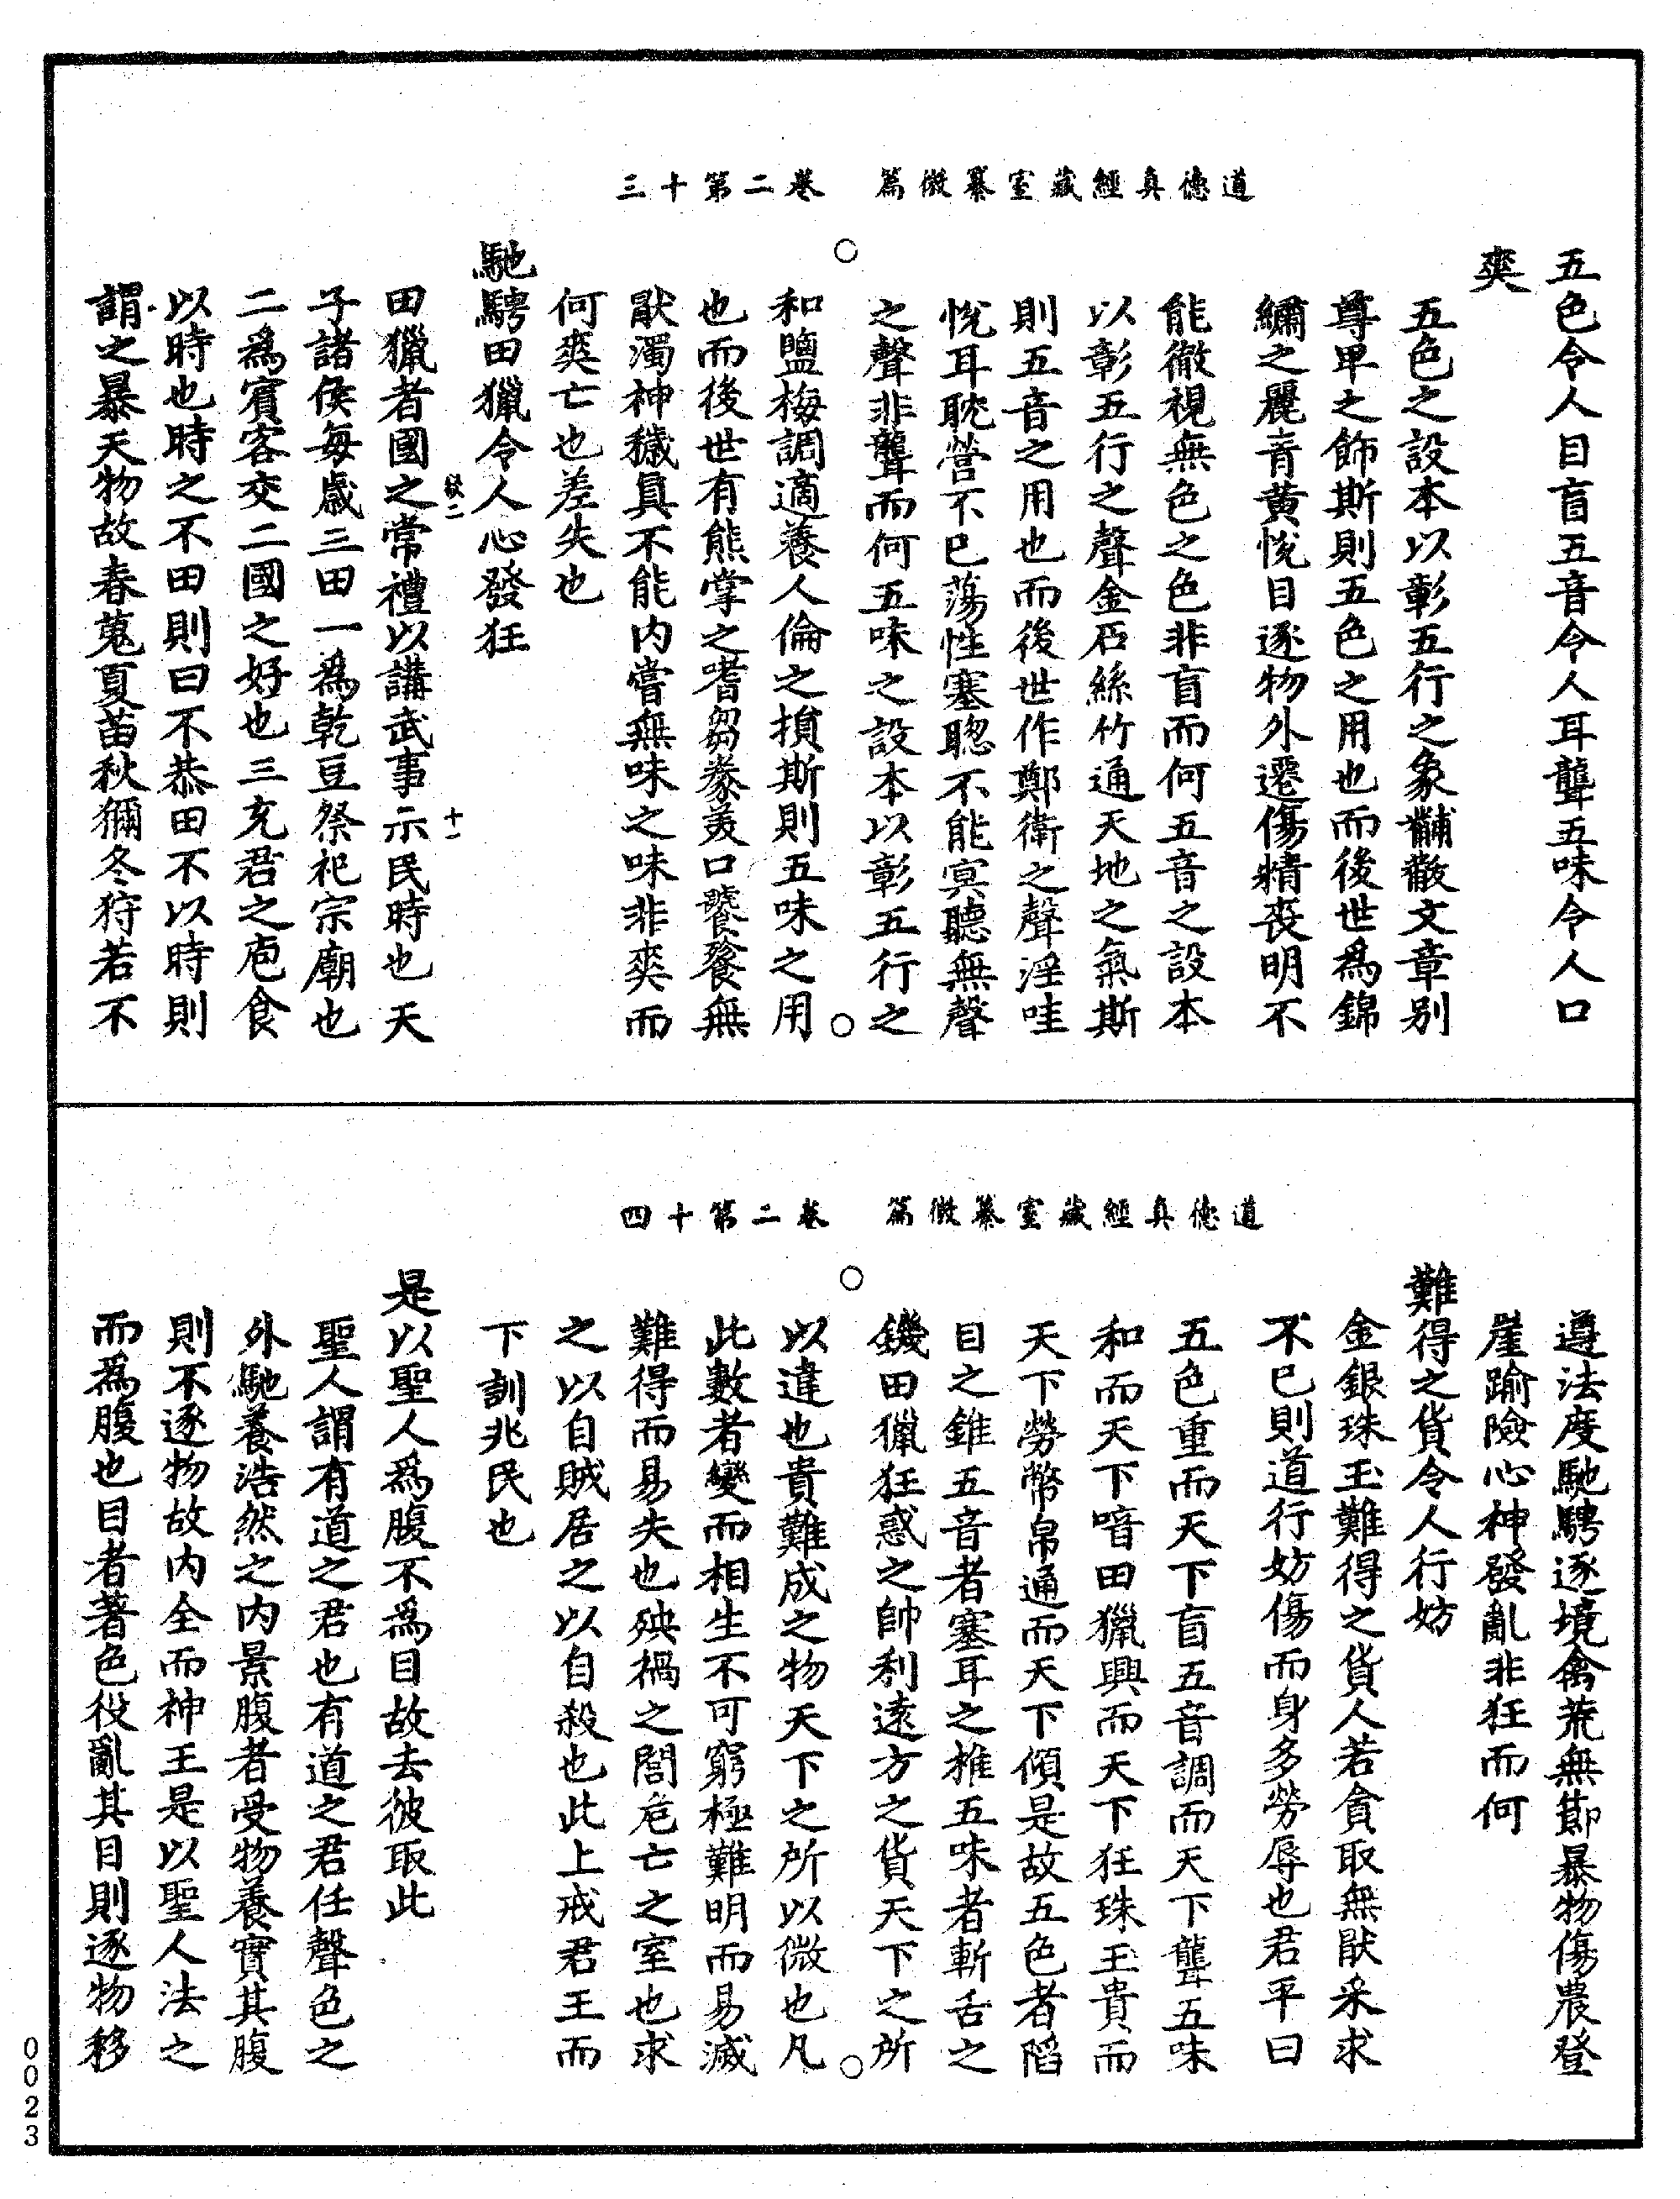 道德真經藏室纂微篇　卷二第十三
五色令人目盲五音令人耳聾五味令人口
爽
五色之設本以彰五行之象黼黻文章别
尊卑之飾斯則五色之用也而後世爲錦
繡之麗青黃悅目逐物外遷傷精喪明不
能徹視無色之色非盲而何五音之設本
以彰五行之聲金石絲竹通天地之氣斯
則五音之用也而後世作鄭衛之聲淫哇
悅耳耽營不已蕩性塞聰不能冥聽無聲
之聲非聾而何五味之設本以彰五行之
和鹽梅調適養人倫之損斯則五味之用
也而後世有熊掌之嗜芻豢美口饕餮無
猒濁神穢真不能内嘗無味之味非爽而
何爽亡也差失也
馳騁田獵令人心發狂
田獵者國之常禮以講武事示民時也天
子諸侯每歲三田一爲乾豆祭祀宗廟也
二爲賓客交二國之好也三充君之庖食
以時也時之不田則曰不恭田不以時則
謂之暴天物故春蒐夏苗秋獮冬狩若不
欲二　十一
道德真經藏室纂微篇　卷二第十四
遵法度馳騁逐境禽荒無節暴物傷農登
崖踰險心神發亂非狂而何
難得之貨令人行妨
金銀珠玉難得之貨人若貪取無猒來求
不已則道行妨傷而身多勞辱也君平曰
五色重而天下盲五音調而天下聾五味
和而天下喑田獵興而天下狂珠玉貴而
天下勞幣帛通而天下傾是故五色者陷
目之錐五音者塞耳之椎五味者斬舌之
鐖田獵狂惑之帥利遠方之貨天下之所
以違也貴難成之物天下之所以微也凡
此數者變而相生不可窮極難明而易滅
難得而易失也殃禍之閭危亡之室也求
之以自賊居之以自殺也此上戒君王而
下訓兆民也
是以聖人爲腹不爲目故去彼取此
聖人謂有道之君也有道之君任聲色之
外馳養浩然之内景腹者受物養實其腹
則不逐物故内全而神王是以聖人法之
而爲腹也目者著色役亂其目則逐物移
0023